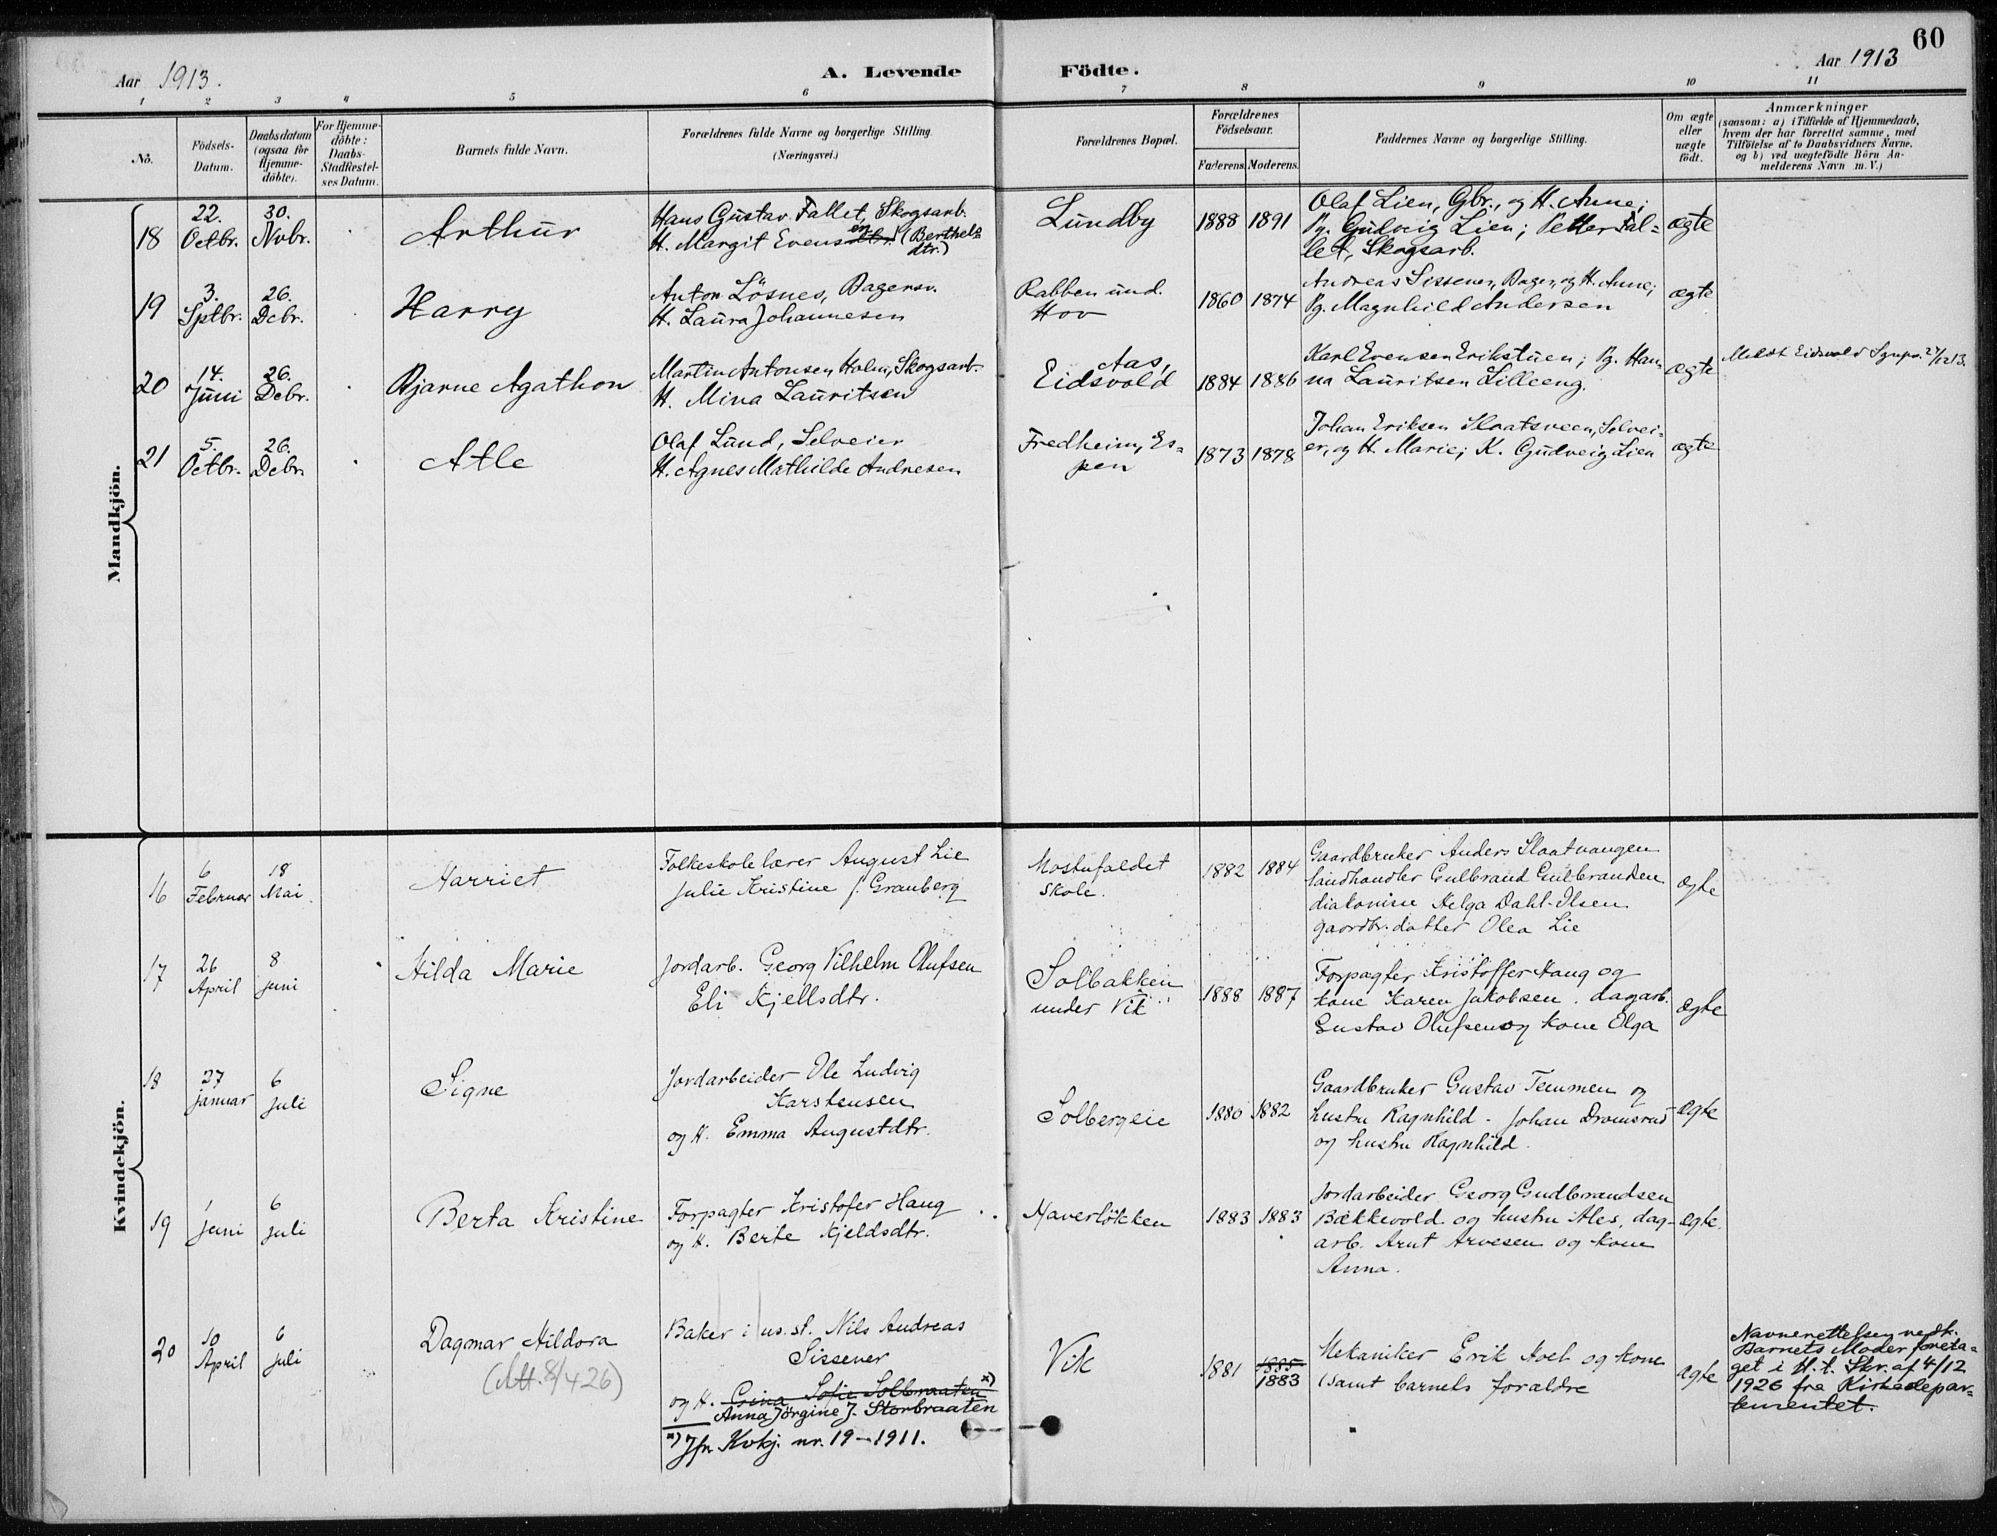 60
Aar 1913.
A. Levende Födte.
Aar 1913
1 2 3 4 5 6 7 8 9 10 11
No.
Födsels-
Datum.
Daabsdatum
(ogsaa for
Hjemme-
döbte).
For Hjemme-
döbte:
Daabs-
Stadfæstel-
ses Datum.
Barnets fulde Navn.
Forældrenes fulde Navne og borgerlige Stilling.
(Næringsvei.)
Forældrenes Bopæl.
Forældrenes
Födselsaar.
Faderens. Moderens.
Faddernes Navne og borgerlige Stilling.
Om ægte
eller
uægte
födt.
Anmærkninger
(saasom: a) i Tilfælde af Hjemmedaab,
hvem der har forrettet samme, med
Tilföielse af to Daabsvidners Navne.
og b) ved uægtefödte Börn An-
melderens Navn m. V.)
Mandkjön.
18
22.
Octbr.
30.
Nvbr.
Arthur
Hans Gustav Fallet, Skogsarb.
H. Margit Evensdtr. en (Berthels
dtr.)
Lundby
1888 1891
Olaf Lien, Gbr., og H. Anne;
Pg. Gudveig Lien; Petter Fal-
let, Skogsarb.
ægte
19
3.
Sptbr.
26.
Dcbr.
Harry
Anton Lösnes, Bagersv.
H. Laura Johannesen
Rabben und.
Hov
1860 1874
Andreas Sissener, Bager, og H. Anne;
Pg. Magnhild Andersen
ægte
20
14.
Juni
26.
Dcbr.
Bjarne Agathon
Martin Antonsen Holm, Skogsarb.
H. Mina Lauritsen
Aas,
Eidsvold
1884 1886
Karl Evensen Erikstuen; Pg. Han-
na Lauritsen Lilleeng.
ægte
Meldt Eidsvold Sgnpr. 27/12 13.
21
5.
Octbr.
26.
Dcbr.
Atle
Olaf Lund, Selveier
H. Agnes Mathilde Andresen
Fredheim, Es-
pen
1873 1878
Johan Eriksen Slaatsveen, Selvei-
er, og H. Marie; K. Gudveig Lien
ægte
Kvindekjön.
16
6
Februar
18
Mai
Harriet
Folkeskolelærer August Lie
Julie Kristine f. Granberg
Mostufaldet
Skole.
1882 1884
Gaardbruker Anders Slaatvangen
landhandler Gulbrand Gulbranden
diakonisse Helga Dahl-Olsen
gaardbr.datter Olea Lie
ægte
17
26
April
8
juni
Hilda Marie
Jordarb. Georg Vilhelm Olufsen
Eli Kjellsdtr.
Solbakken
under Vik
1888 1887
Forpagter Kristoffer Haug og
kone Karen Jakobsen. dagarb.
Gustav Olufsen og kone Olga
Ægte
18
27
januar
6
juli
Signe
Jordarbeider Ole Ludvig
Karstensen
og H. Emma Augustdtr.
Solbergeie
1880 1882
Gaardbruker Gustav Temmen og
hustru Ragnhild. Johan Dromsrud
og hustru Ragnhild.
Ægte
19
1
juni
6
juli
Berta Kristine
Forpagter Kristofer Haug
og H. Berte Kjeldsdtr.
Haverlökken
1883 1883
Jordarbeider Georg Gudbrandsen
Bækkevold og hustru Ales, dag-
arb. Arnt Arvesen og kone
Anna.
Ægte.
20
10
April
6
juli
Dagmar Hildora
(Att. 8/426)
Baker i us. st. Nils Andreas
Sissener
og H. Crina Sofie Solbraaten x)
Anna Jörgine J. Storbraaten
x) Jfr. Kvkj. nr. 19 - 1911.
Vik
1881
1885
1883
Mekaniker Erik Hoel og kone
(samt barnets forældre
ægte
Navnerettelsen vedk.
Barnets Moder foreta-
get i H. t. Skr. af 4/12
1926 fra Kirkedepar-
tementet.